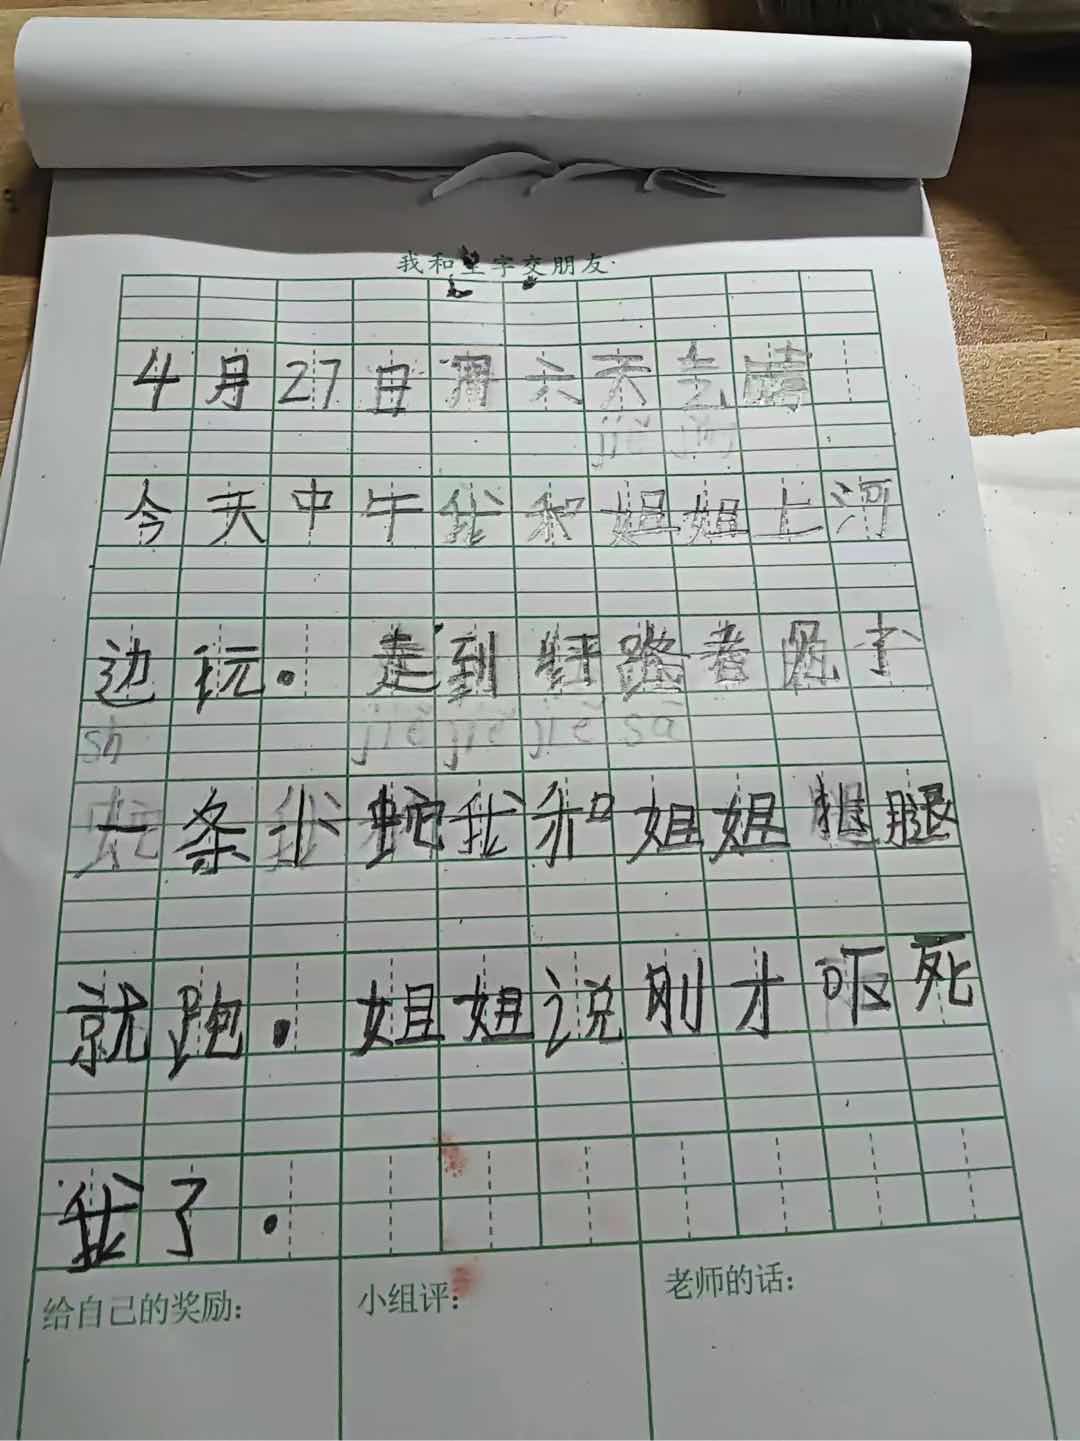 我和生字交朋友
4月27日周六天气晴
今天中午我和姐姐上河
边玩。走到半路看见了
一条小蛇我和姐姐腿
就跑。姐姐说刚才吓死
我了。
给自己的奖励:
小组评:
老师的话: